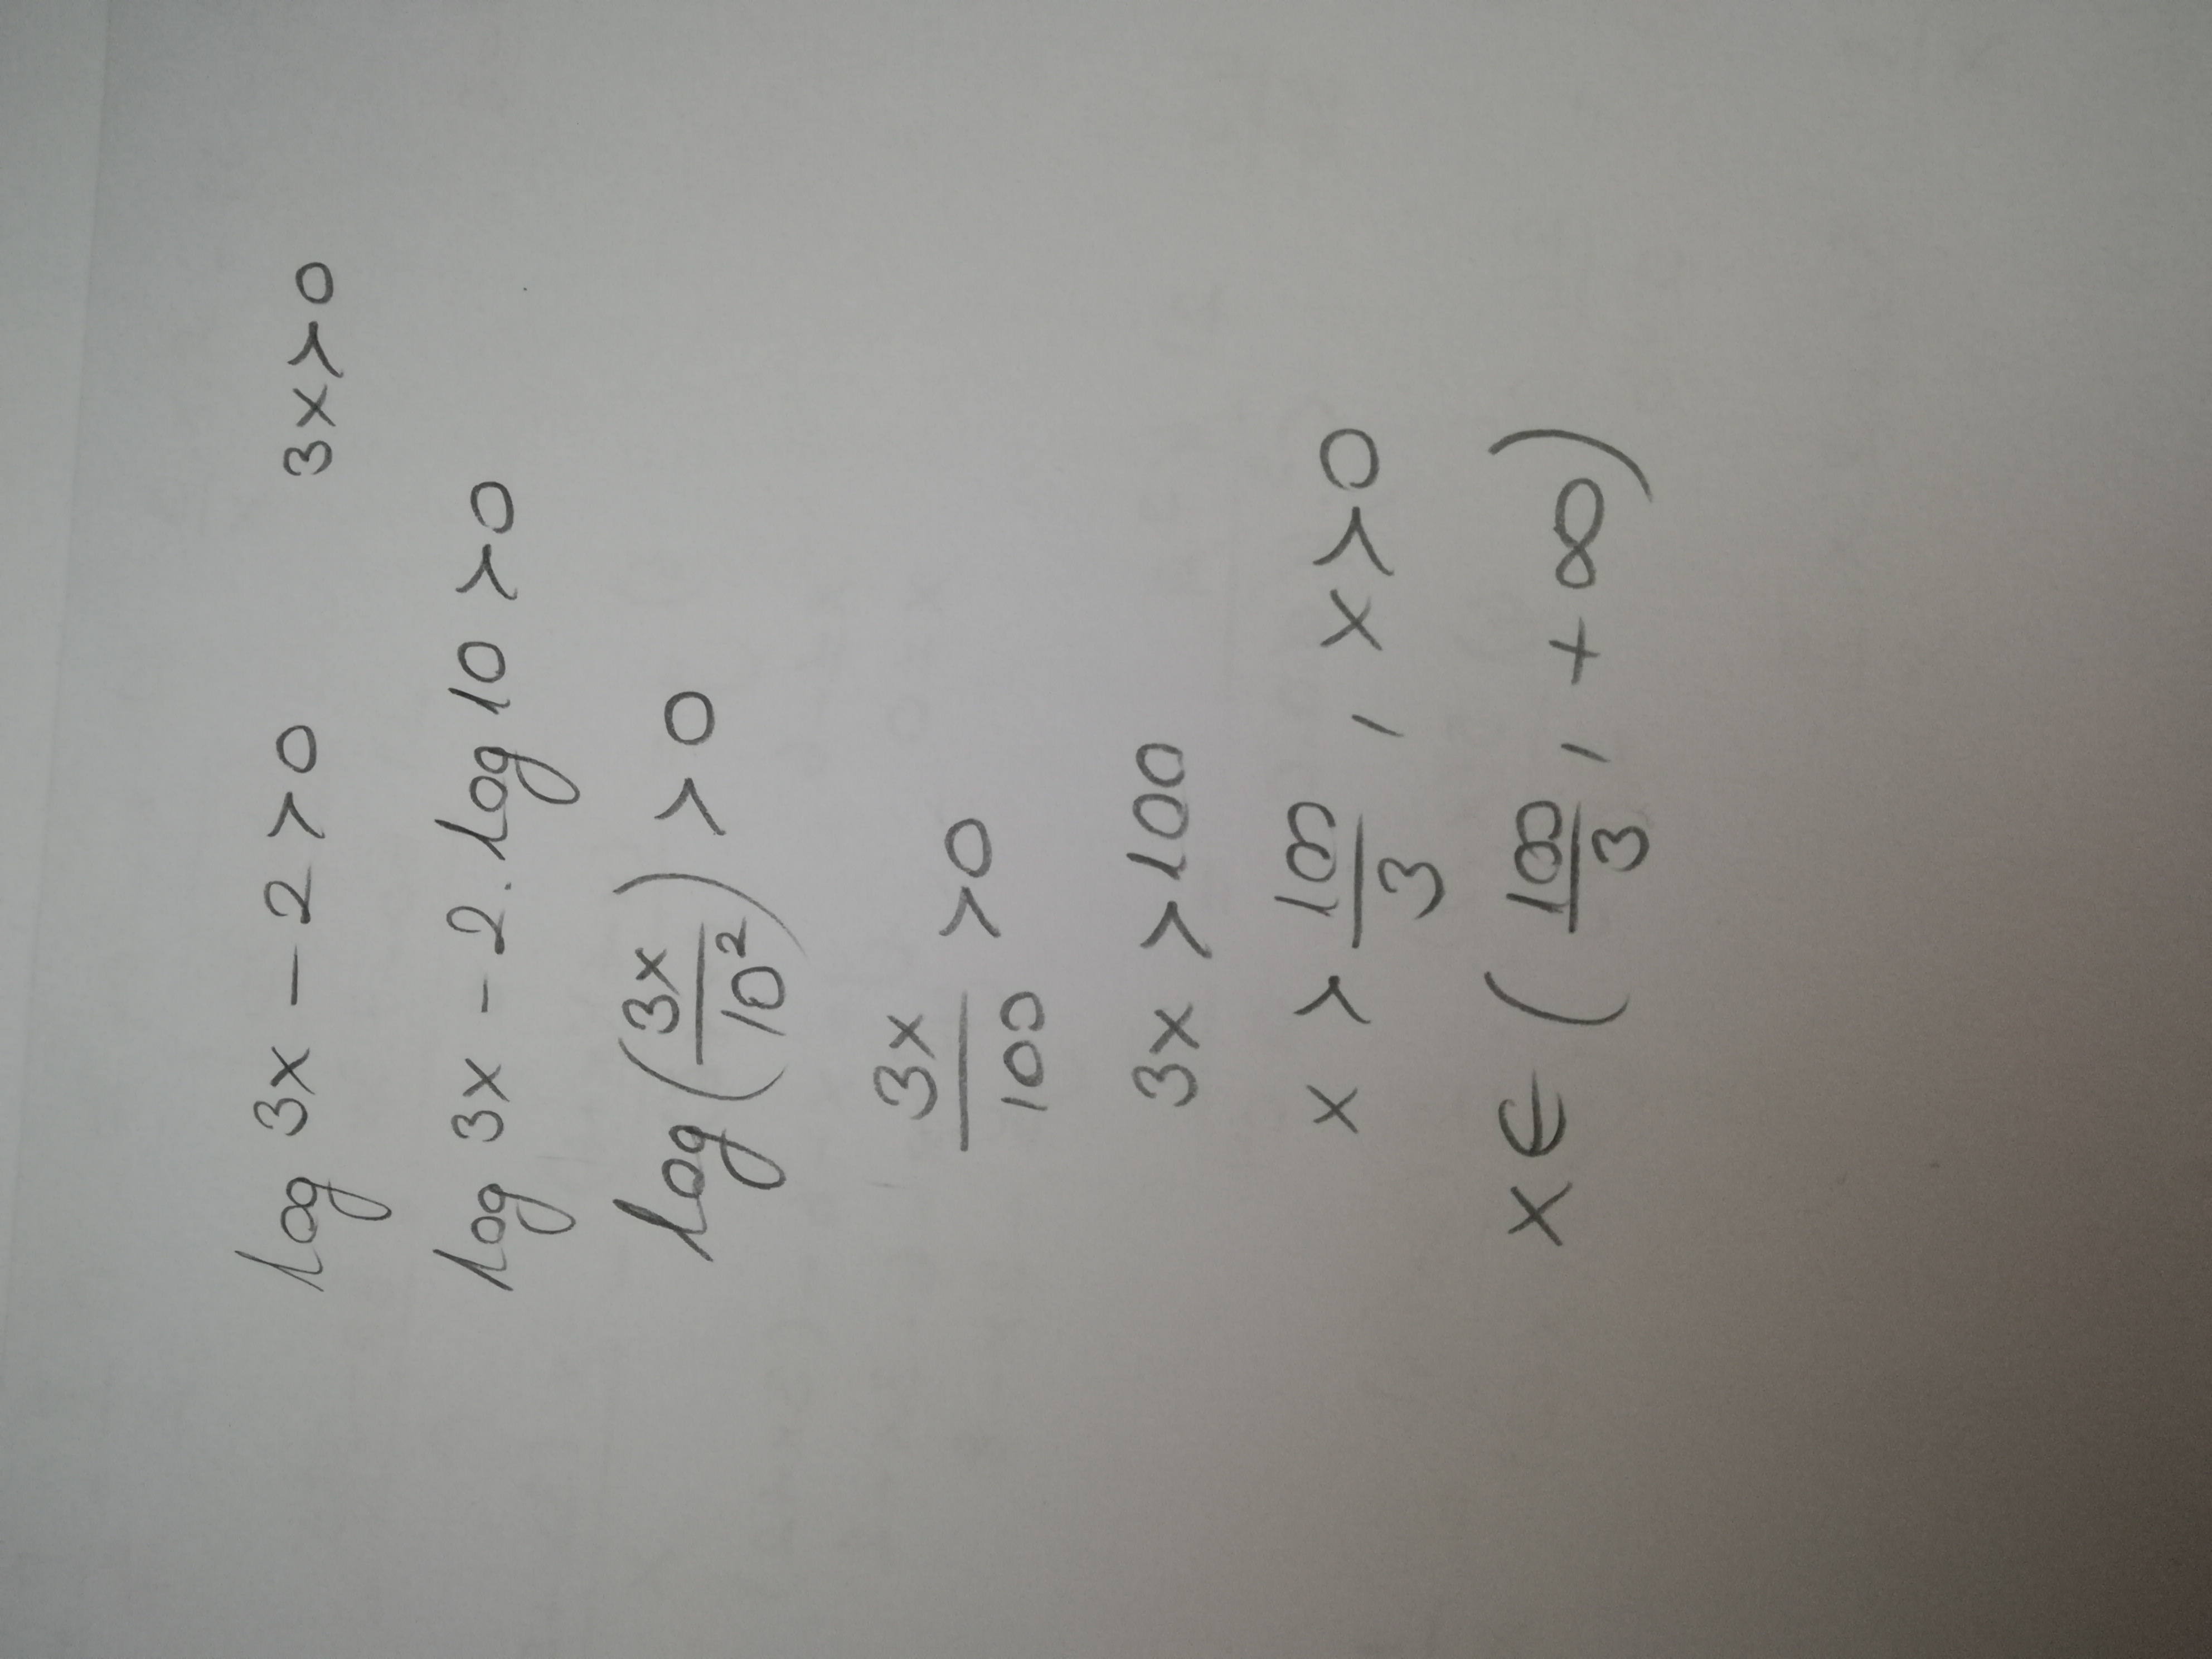 log 3x - 2 > 0 3x > 0
log 3x - 2 . log 10 > 0
log (3x/10²) > 0
3x/100 > 0
3x > 100
x > 100/3 , x > 0
x ∈ (100/3 , + ∞)